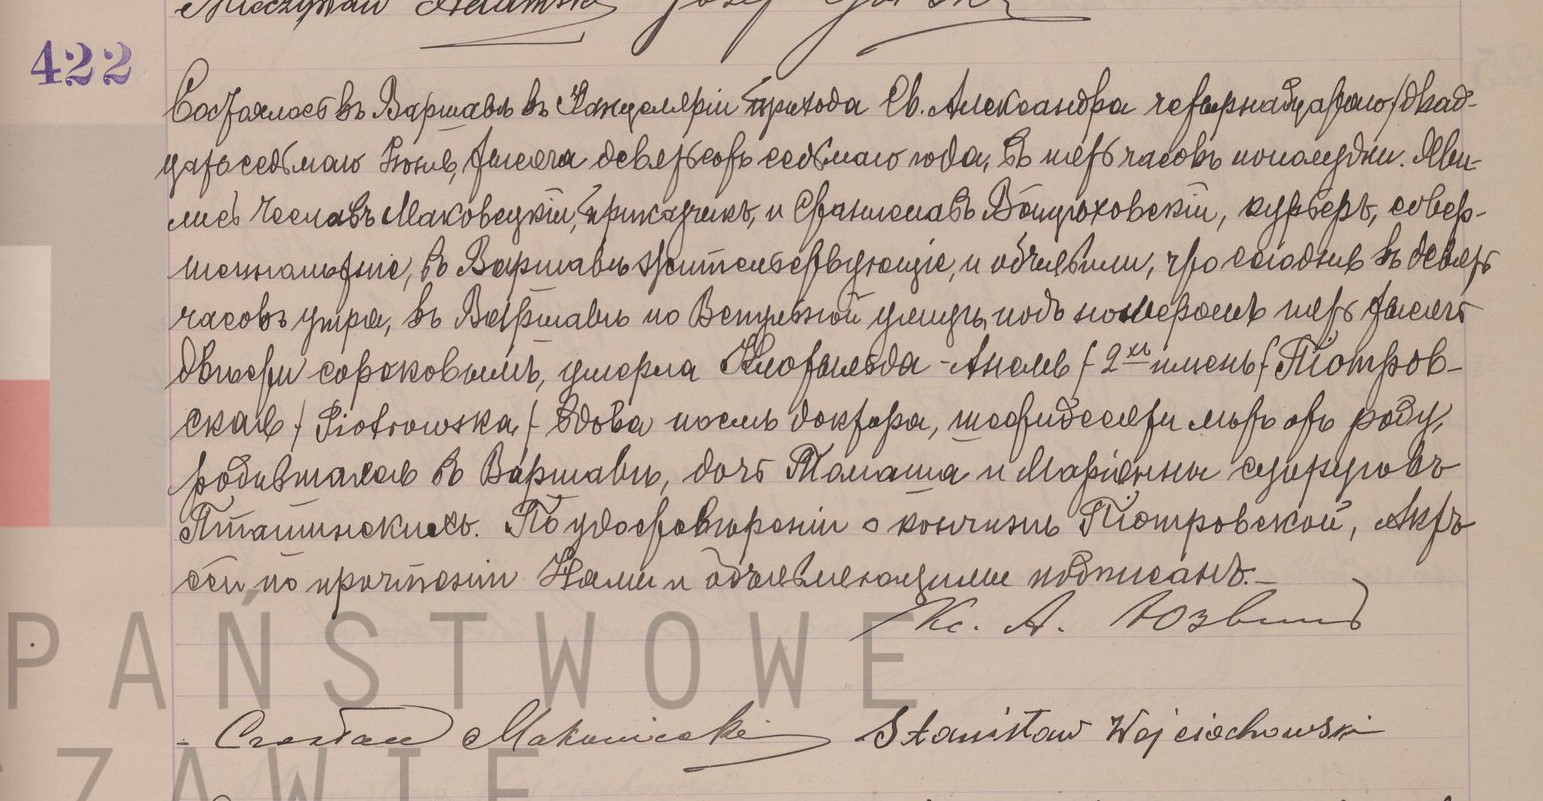 Mieczysław Adamski Józef
422
Состоялось въ Варшавѣ въ Канцеляріи прихода Св. Александра четырнадцатаго /двад-
цать седьмаго Іюня, тысяча девятьсотъ седьмаго года, въ пять часовъ пополудни. Яви-
лись Чеславъ Маковецкій, приказчикъ, и Станиславъ Войцѣховскій, курьеръ, совер-
шеннолѣтніе, въ Варшавѣ жительствующіе, и объявили, что сегодня въ девять
часовъ утра, въ Варшавѣ по улицѣ подъ номеромъ пять тысячъ
двѣсти сороковымъ, умерла Клотильда-Анеля / 2хъ именъ / Піотров-
ская / Piotrowska / вдова послѣ доктора, шестидесяти лѣтъ отъ роду,
родившаяся въ Варшавѣ, дочь Томаша и Маріанны супруговъ
Пташинскихъ. По удостовѣреніи о кончинѣ Піотровской, Актъ
сей по прочтеніи Нами и объявляющими подписанъ.-
Кс. А.
Czesław Makowiecki Stanisław Wojciechowski
PAŃSTWOWE
CZAWIE